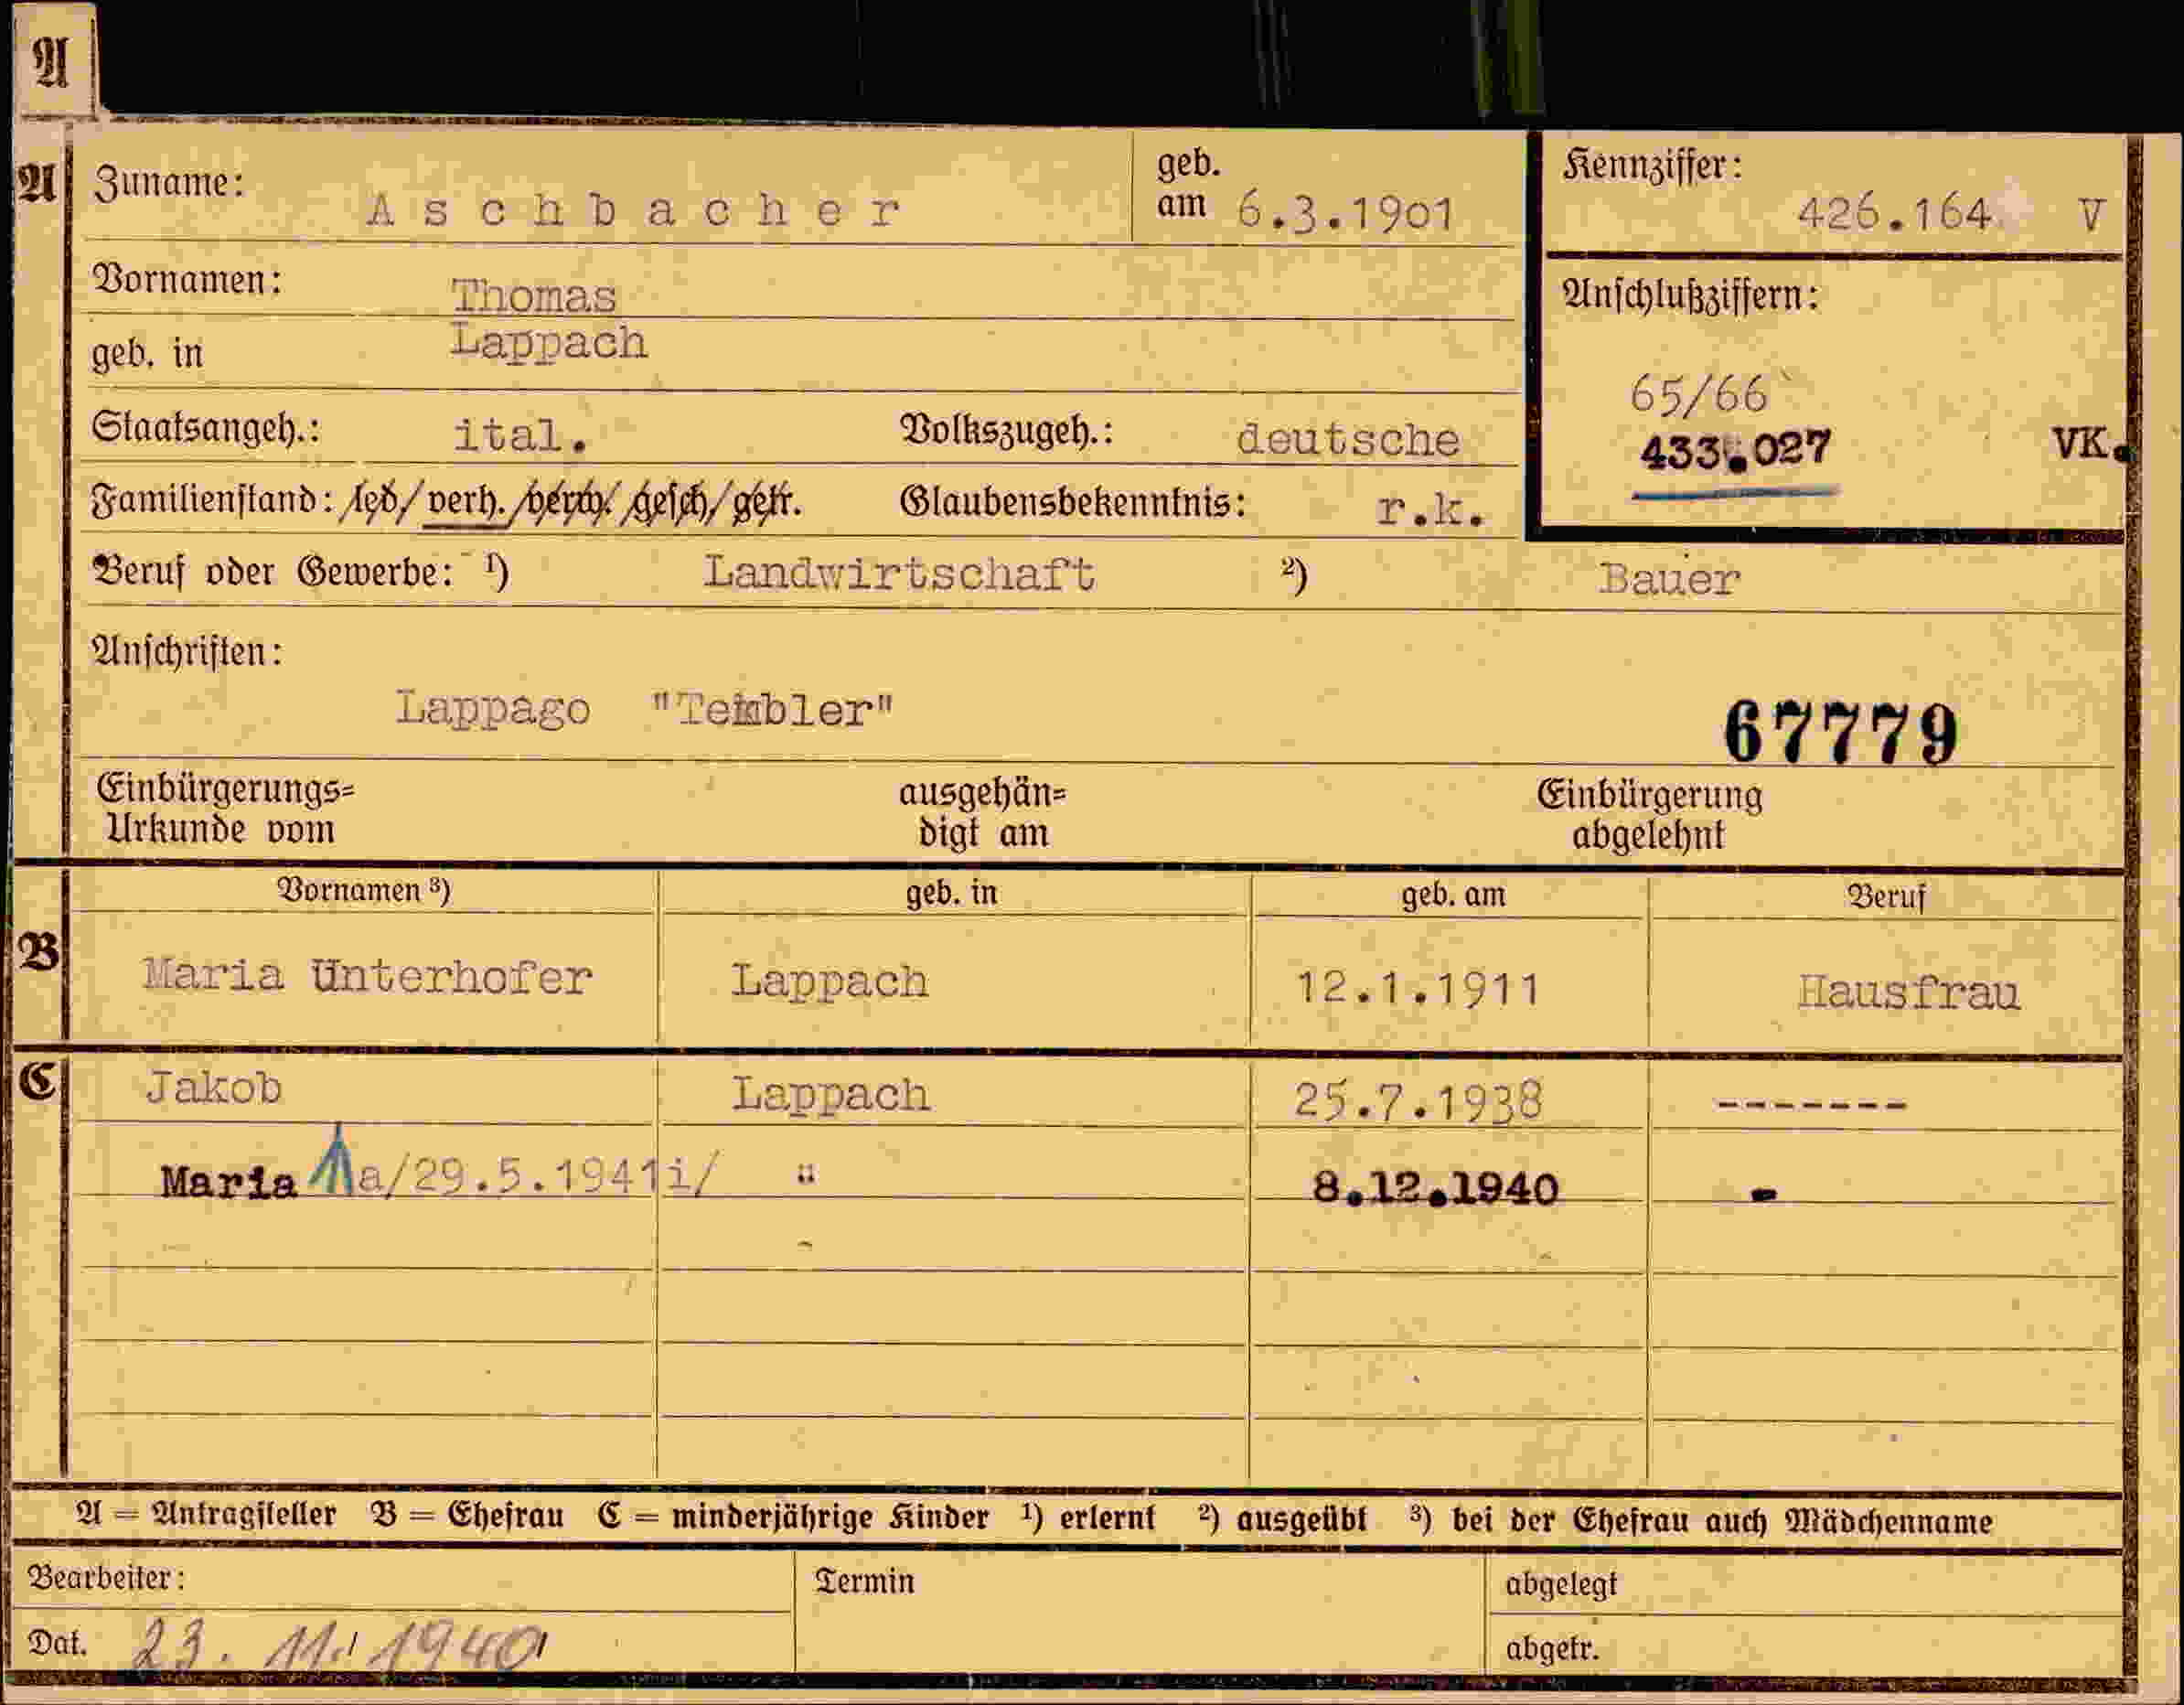 A
A Zuname: Aschbacher geb. am 6.3.1901 Kennziffer: 426.164 V
Vornamen: Thomas Anschlußziffern:
geb. in Lappach
65/66
Staatsangeh.: ital. Volkszugeh.: deutsche 433.027 VK.
Familienstand: led/ verh. /verw/ gesch/ getr. Glaubensbekenntnis: r.k.
Beruf oder Gewerbe: 1) Landwirtschaft 2) Bauer
Anschriften:
Lappago "Tembler" 67779
Einbürgerungs= ausgehän= Einbürgerung
Urkunde vom digt am abgelehnt
Vornamen 3) geb. in geb. am Beruf
B Maria Unterhofer Lappach 12.1.1911 Hausfrau
C Jakob Lappach 25.7.1938 -------
Maria /a/29.5.1941i/ " 8.12.1940 -
A = Antragsteller B = Ehefrau C = minderjährige Kinder 1) erlernt 2) ausgeübt 3) bei der Ehefrau auch Mädchenname
Bearbeiter: Termin abgelegt
Dat. 23. 11. 1940 abgetr.